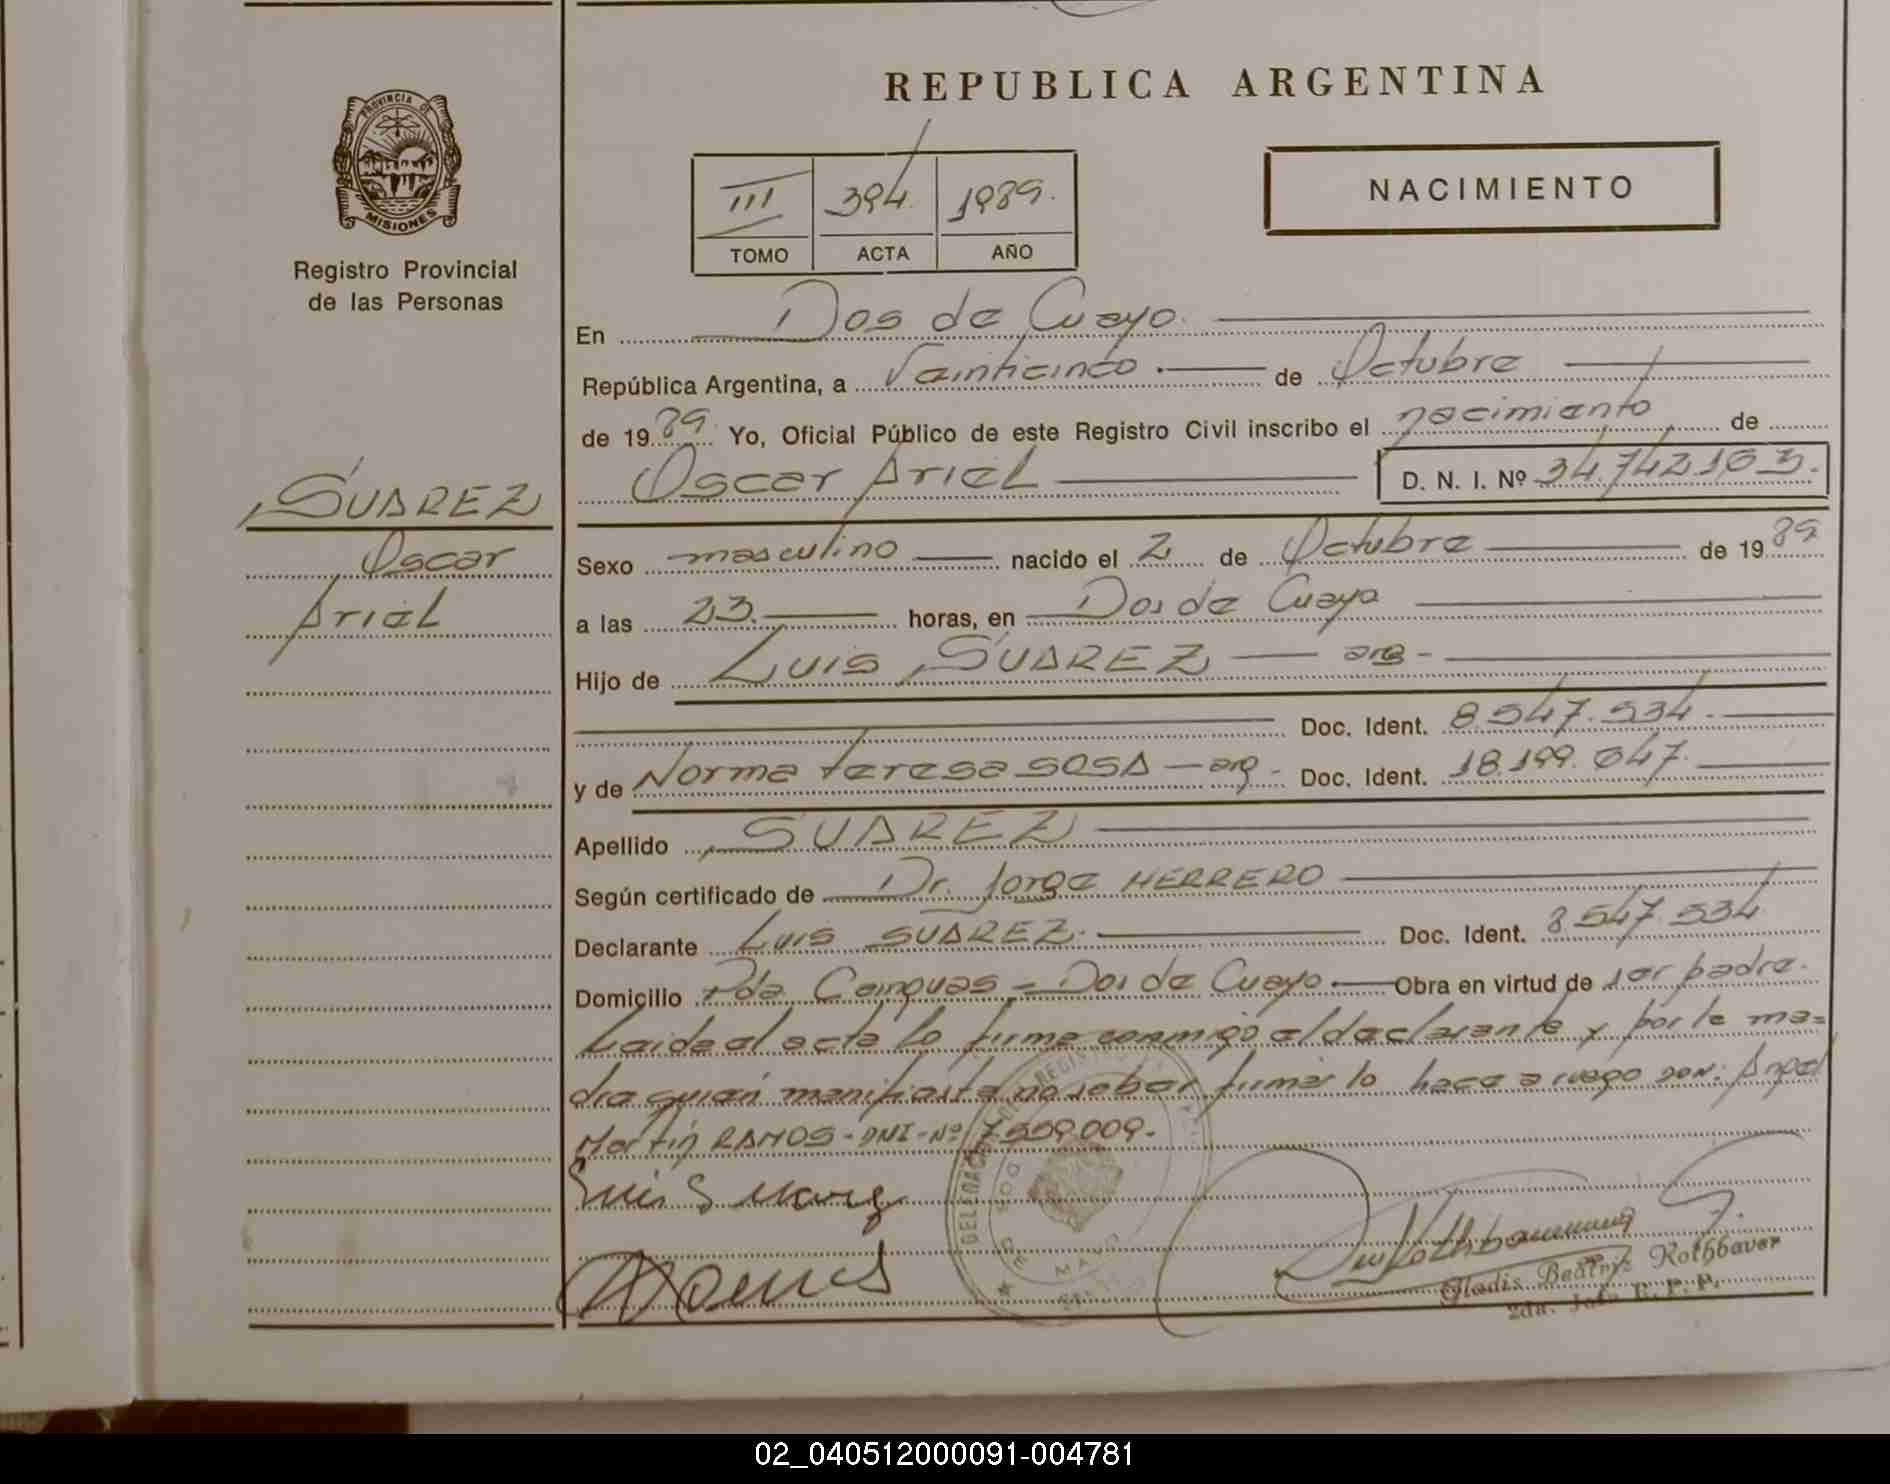 REPUBLICA ARGENTINA
PROVINCIA DE
MISIONES
Registro Provincial
de las Personas
III 394 1989.
TOMO ACTA AÑO
NACIMIENTO
SUAREZ
Oscar
Ariel
En Dos de Mayo.
República Argentina, a Veinticinco. de Octubre
de 19 89. Yo, Oficial Público de este Registro Civil inscribo el nacimiento de
Oscar Ariel D. N. I. Nº 34.742.103.
Sexo masculino nacido el 2 de Octubre de 19 89
a las 23. horas, en Dos de Mayo
Hijo de Luis SUAREZ — arg -
Doc. Ident. 8.547.534.
y de Norma teresa SOSA — arg - Doc. Ident. 18.199.047.
Apellido SUAREZ
Según certificado de Dr. Jorge HERRERO
Declarante Luis SUAREZ. Doc. Ident. 8.547.534
Domicilio Pda. - Dos de Mayo. Obra en virtud de ser padre.
Leída el acta la firma conmigo el declarante y por la ma=
dre quién manifiesta no saber firmar lo hace a ruego DON: Angel
Martín RAMOS - DNI - Nº 7.559.009.-
Luis Suarez
Ramos
DOS DE MAYO
Gladis Beatriz Rothbauer
2da. Jefe R. P. P.
02_040512000091-004781